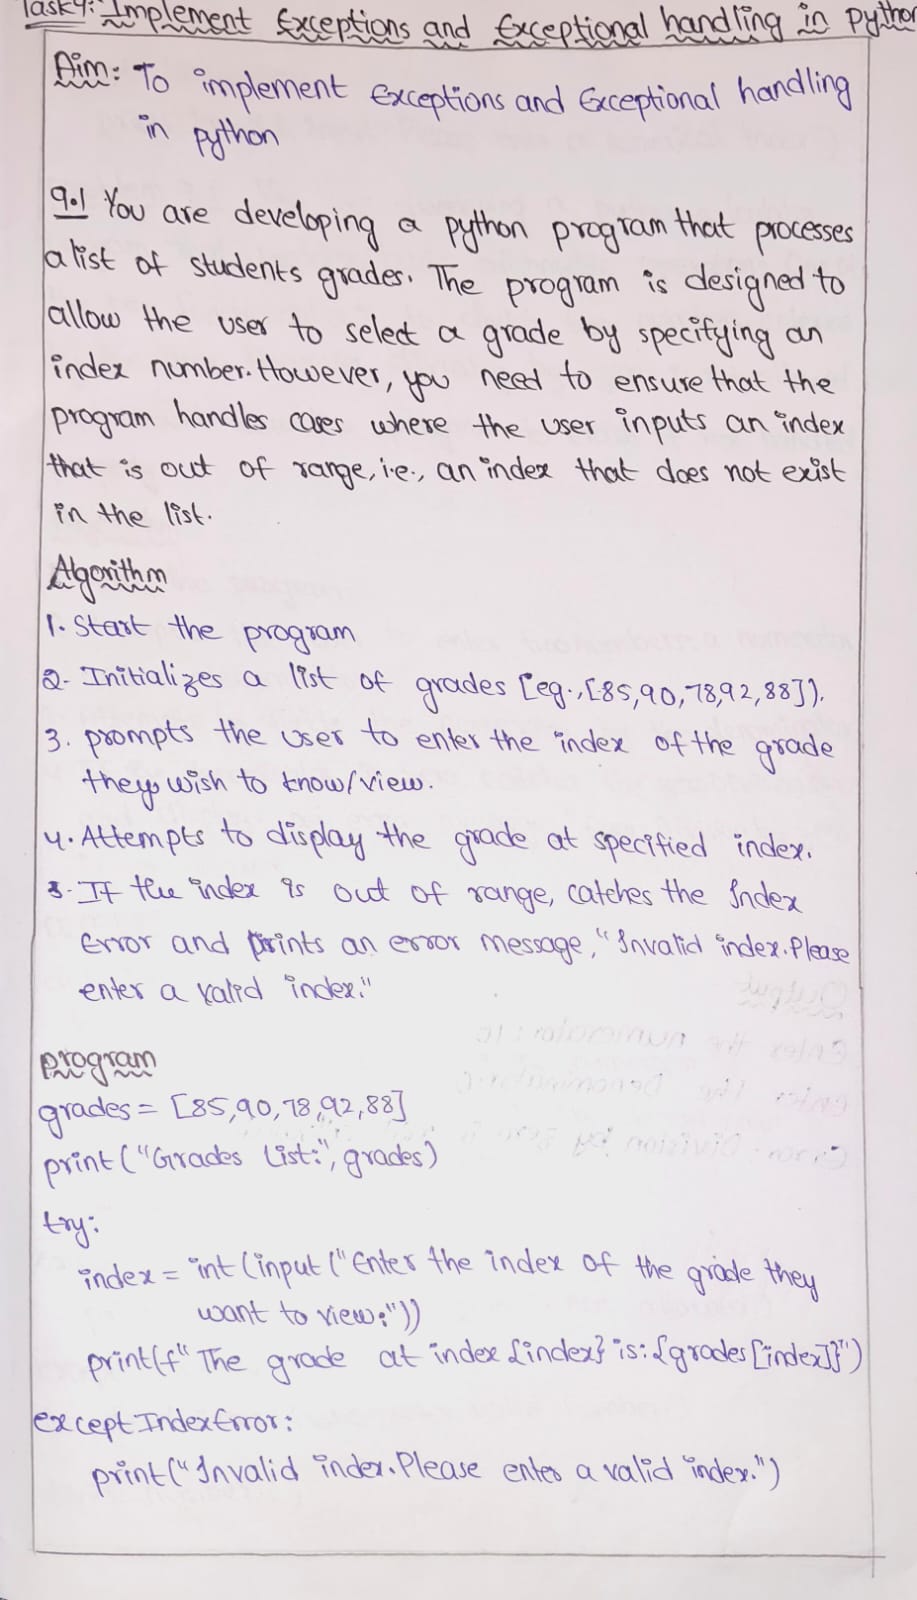 Task9: Implement Exceptions and Exceptional handling in python
Aim: To implement Exceptions and Exceptional handling
in python
9.1 You are developing a python program that processes
a list of students grades. The program is designed to
allow the user to select a grade by specifying an
index number. However, you need to ensure that the
program handles cases where the user inputs an index
that is out of range, i.e., an index that does not exist
in the list.
Algorithm
1. Start the program
2. Initializes a list of grades [eg., [85,90,78,92,88]).
3. prompts the user to enter the index of the grade
they wish to know/view.
4. Attempts to display the grade at specified index.
5. If the index is out of range, catches the Index
Error and prints an error message, "Invalid index. Please
enter a valid index."
program
grades = [85,90,78,92,88]
print("Grades List:", grades)
try:
index = int(input("Enter the index of the grade they
want to view:"))
print(f"The grade at index {index} is: {grades[index]}")
except IndexError:
print("Invalid index. Please enter a valid index.")